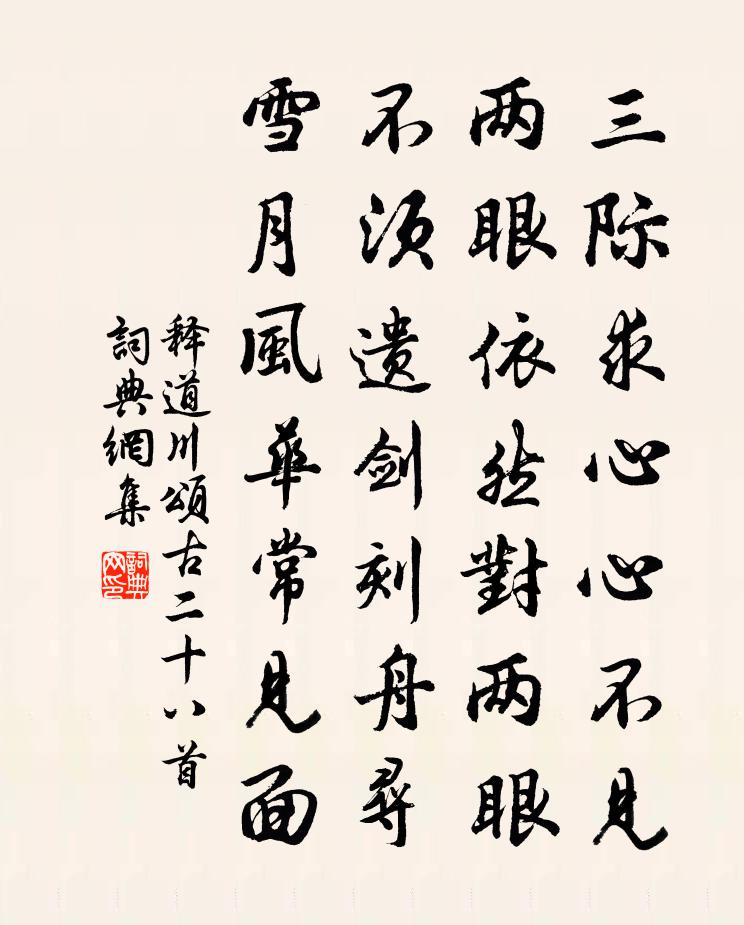 三际求心心不见
两眼依然對两眼
不须遗剑刻舟尋
雪月風華常見面
释道川頌古二十八首
詞典網集
詞典网印